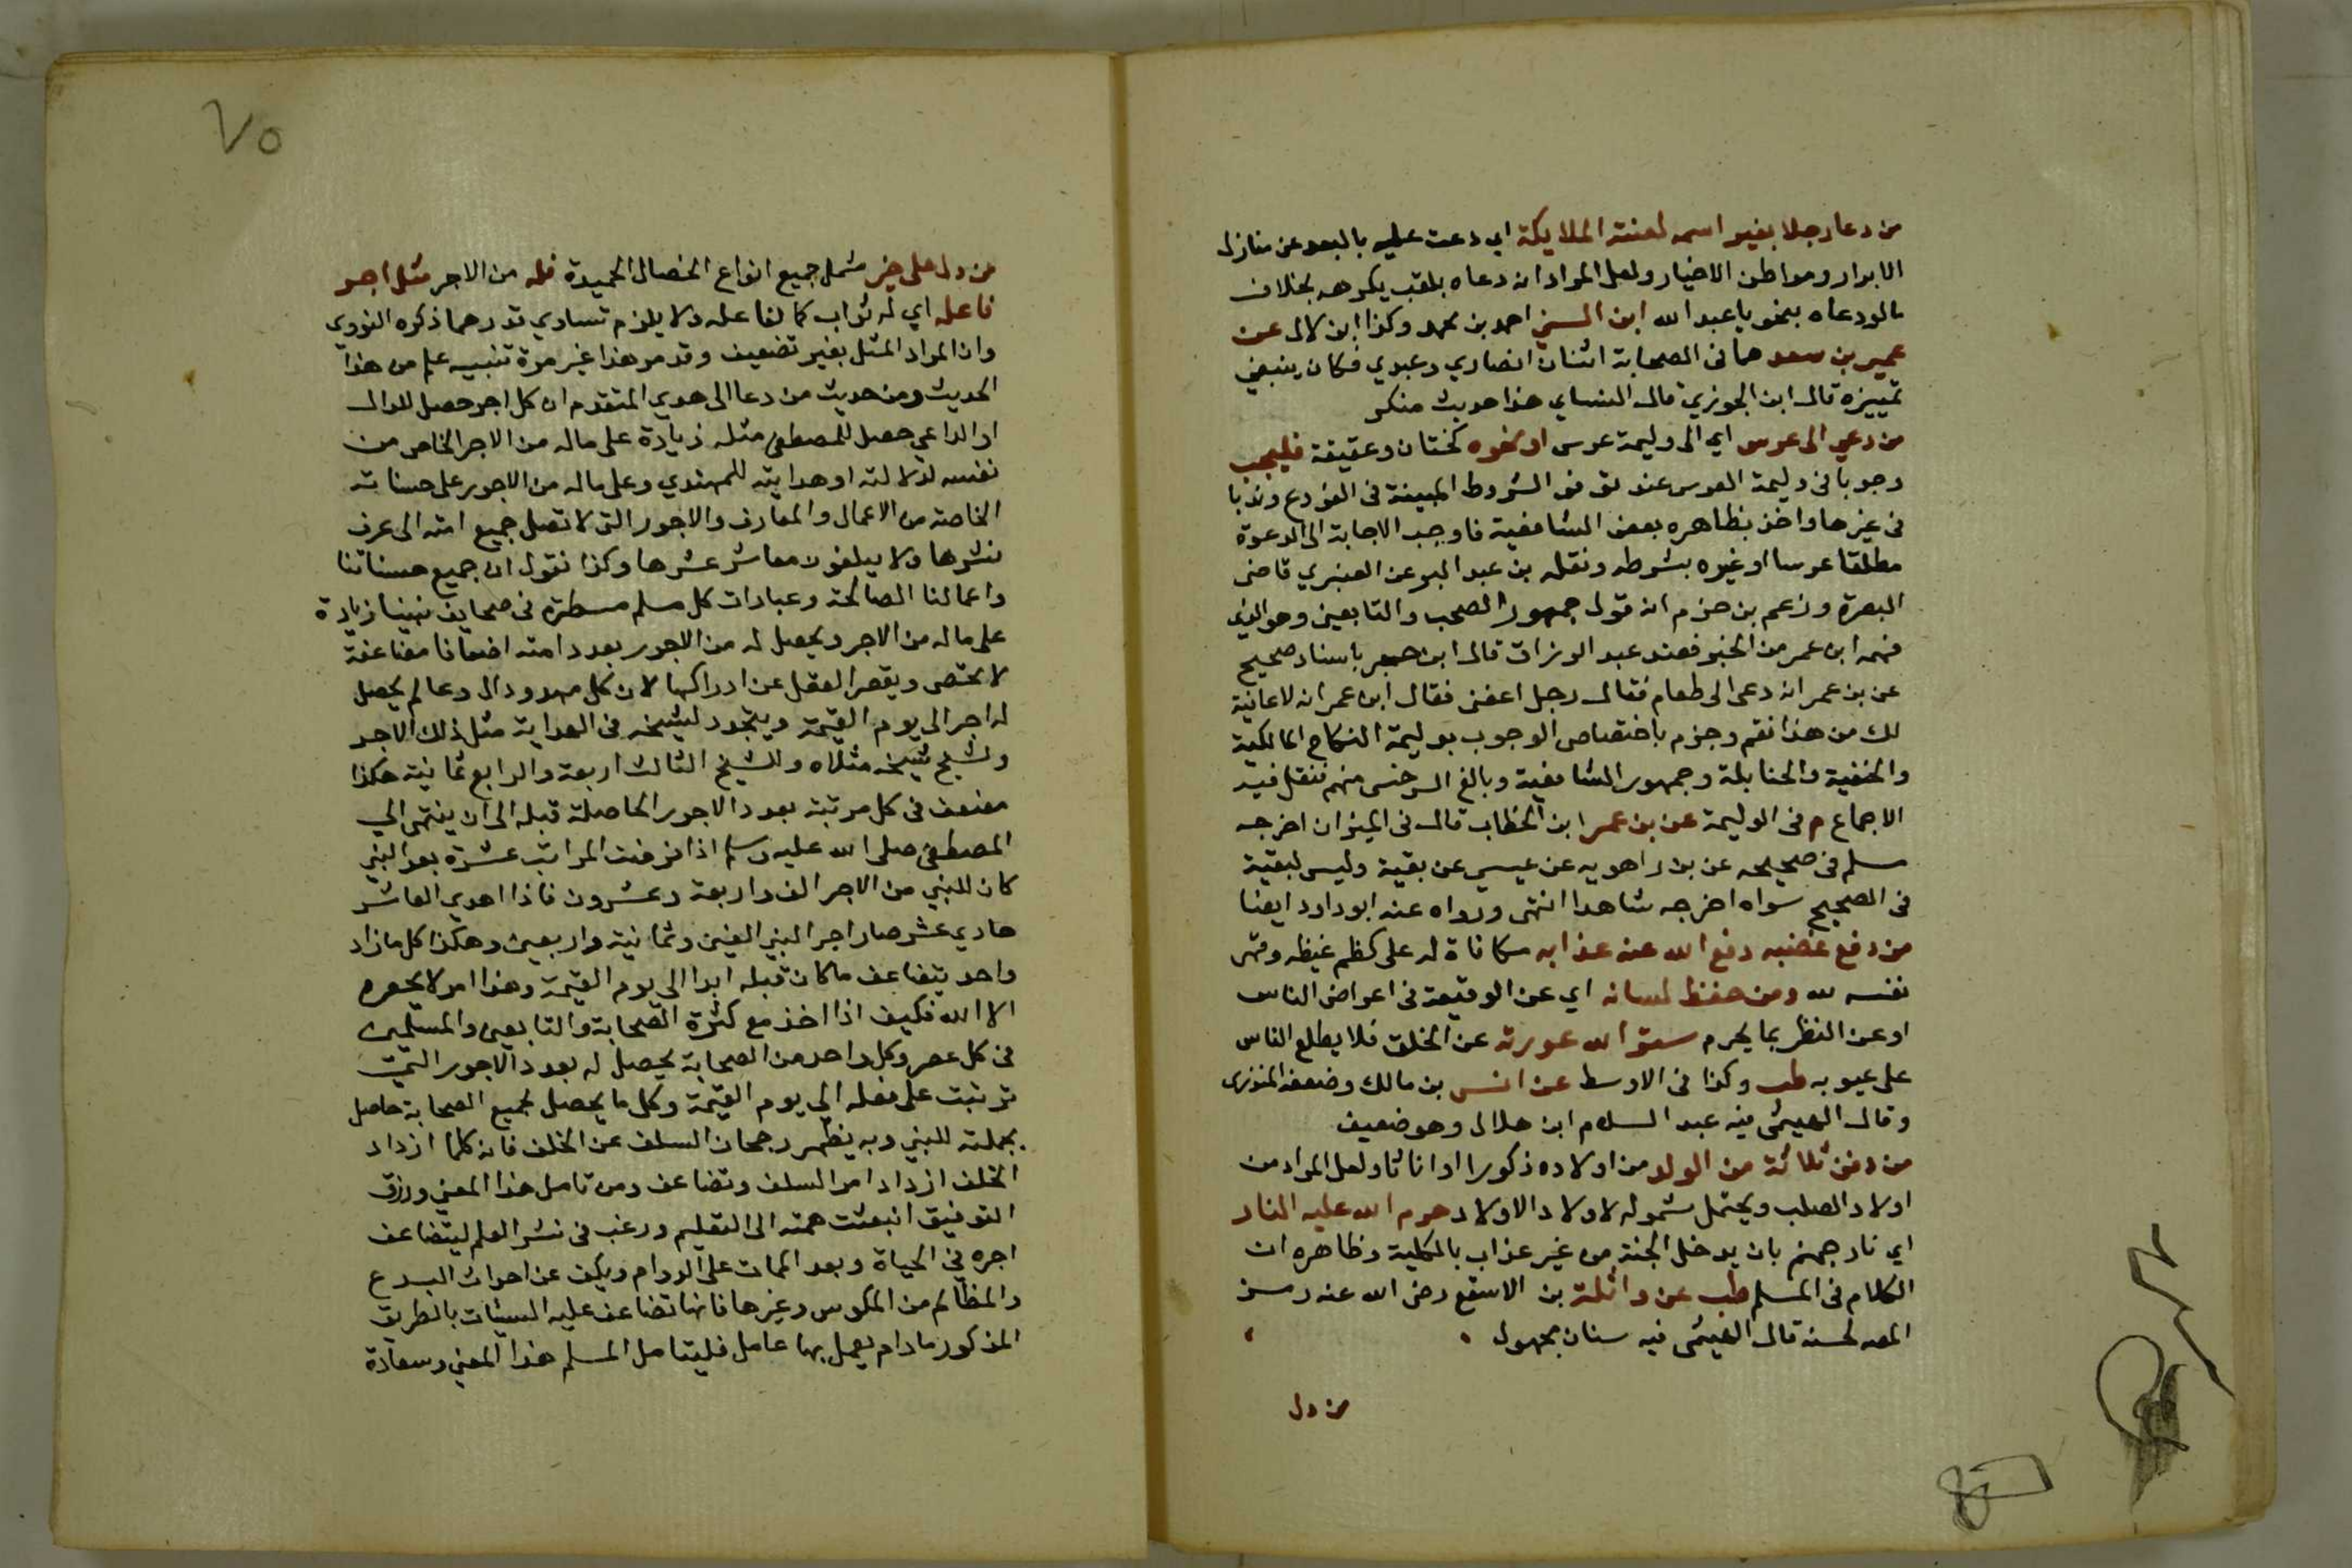 من دعا رجلا بغير اسمه لعنته الملايكة اي دعت عليه بالبعد عن منازل
الابرار ومواطن الاخيار ولعل المراد ان دعاه بلقب يكرهه بخلاف
مالودعاه بنحو يا عبد الله ابن السني احمد بن محمد وكذا ابن لال عن
عمير بن سعد هما في الصحابة اثنان انصاري وعبدي فكان ينبغي
تمييزه قال ابن الجوزي قال النساي هذا حديث منكر
من دعي الى عرس اي الى وليمة عرس او نحوه كختان وعقيقة فليجب
وجوبا في وليمة العرس عند توفر الشروط المبينة في الفروع وندبا
في غيرها واخذ بظاهره بعض الشافعية فاوجب الاجابة الى الدعوة
مطلقا عرسا اوغيره بشرطه ونقله بن عبد البر عن العنبري قاضي
البصرة وزعم بن حزم انه قول جمهور الصحب والتابعين وهو الذي
فهمه ابن عمر من الخبر فعند عبد الرزاق قال ابن حجر باسناد صحيح
عن بن عمر انه دعى الى طعام فقال رجل اعفني فقال ابن عمر انه لا عافية
لك من هذا نقم وجزم باختصاص الوجوب بوليمة النكاح المالكية
والحنفية والحنابلة وجمهور الشافعية وبالغ السرخسي منهم فنقل فيه
الاجماع م في الوليمة عن بن عمر ابن الخطاب قال في الميزان اخرجه
مسلم في صحيحه عن بن راهويه عن عيسي عن بقية وليس لبقية
في الصحيح سواه اخرجه شاهدا انتهى ورواه عنه ابو داود ايضا
من دفع غضبه دفع الله عنه عذابه مكافاة له على كظم غيظه وقهر
نفسه لله ومن حفظ لسانه اي عن الوقيعة في اعراض الناس
او عن النظر بما يحرم ستر الله عورته عن الخلق فلا يطلع الناس
على عيوبه طب وكذا في الاوسط عن انس بن مالك وضعفه المنذرى
وقال الهيثمي فيه عبد السلام ابن هلال وهو ضعيف
من دفن ثلاثة من الولد من اولاده ذكورا او اناثا ولعل المراد من
اولاد الصلب ويحتمل شموله لاولاد الاولاد حرم الله عليه النار
اي نار جهنم بان يدخل الجنة من غير عذاب بالكلية وظاهره ان
الكلام في المسلم طب عن واثلة بن الاسقع رضى الله عنه رمز
المصه لحسنه قال الهيثمى فيه سنان مجهول
من دل
٧٥
من دل على خير شمل جميع انواع الخصال الحميدة فله من الاجر مثل اجر
فاعله اي له ثواب كما لفاعله ولا يلزم تساوي قدرهما ذكره النووي
وان المراد المثل بغير تضعيف وقد مر هذا غير مرة تنبيه علم من هذا
الحديث ومن حديث من دعا الى هدي المتقدم ان كل اجر حصل للدال
او الداعي حصل للمصطفى مثله زيادة على ماله من الاجر الخاص من
نفسه لدلالته او هدايته للمهتدي وعلى ماله من الاجور على حسناته
الخاصة من الاعمال والمعارف والاجور التى لا تصل جميع امته الى عرف
نشرها ولا يبلغون معاشر عشرها وكذا نقول ان جميع حسناتنا
واعمالنا الصالحة وعبادات كل مسلم مسطرة في صحايف نبينا زيادة
على ماله من الاجر ويحصل له من الاجور بعدد امته اضعافا مضاعفة
لا تحصى ويقصر العقل عن ادراكها لان كل مهد ودال وعالم يحصل
له اجر الى يوم القيمة ويتجدد لشيخه في الهداية مثل ذلك الاجر
ولشيخ شيخه مثلاه وللشيخ الثالث اربعة والرابع ثمانية هكذا
تضعف في كل مرتبة بعدد الاجور الحاصلة قبله الى ان ينتهى الي
المصطفى صلى الله عليه وسلم اذا فرضت المراتب عشرة بعد النبي
كان للنبي من الاجر الف واربعة وعشرون فاذا اهدي العاشر
حادي عشر صار اجر النبي الفين وثمانية واربعين وهكذا كل ما زاد
واحد يتضاعف ماكان قبله ابدا الى يوم القيمة وهذا امر لا يحصره
الا الله فكيف اذا اخذ مع كثرة الصحابة والتابعين والمسلمين
في كل عصر وكل واحد من الصحابة يحصل له بعدد الاجور التي
ترتبت على فعله الي يوم القيمة وكل ما يحصل لجميع الصحابة حاصل
بجملته للنبي وبه يظهر رجحان السلف عن الخلف فانه كلما ازداد
الخلف ازداد امر السلف وتضاعف ومن تامل هذا المعني ورزق
التوفيق انبعثت همته الى التعليم ورغب في نشر العلم ليتضاعف
اجره في الحياة وبعد الممات على الدوام ويكف عن احداث البدع
والمظالم من المكوس وغيرها فانها تضاعف عليه السيئات بالطريق
المذكور مادام يعمل بها عامل فليتامل المسلم هذا المعني وسعادة